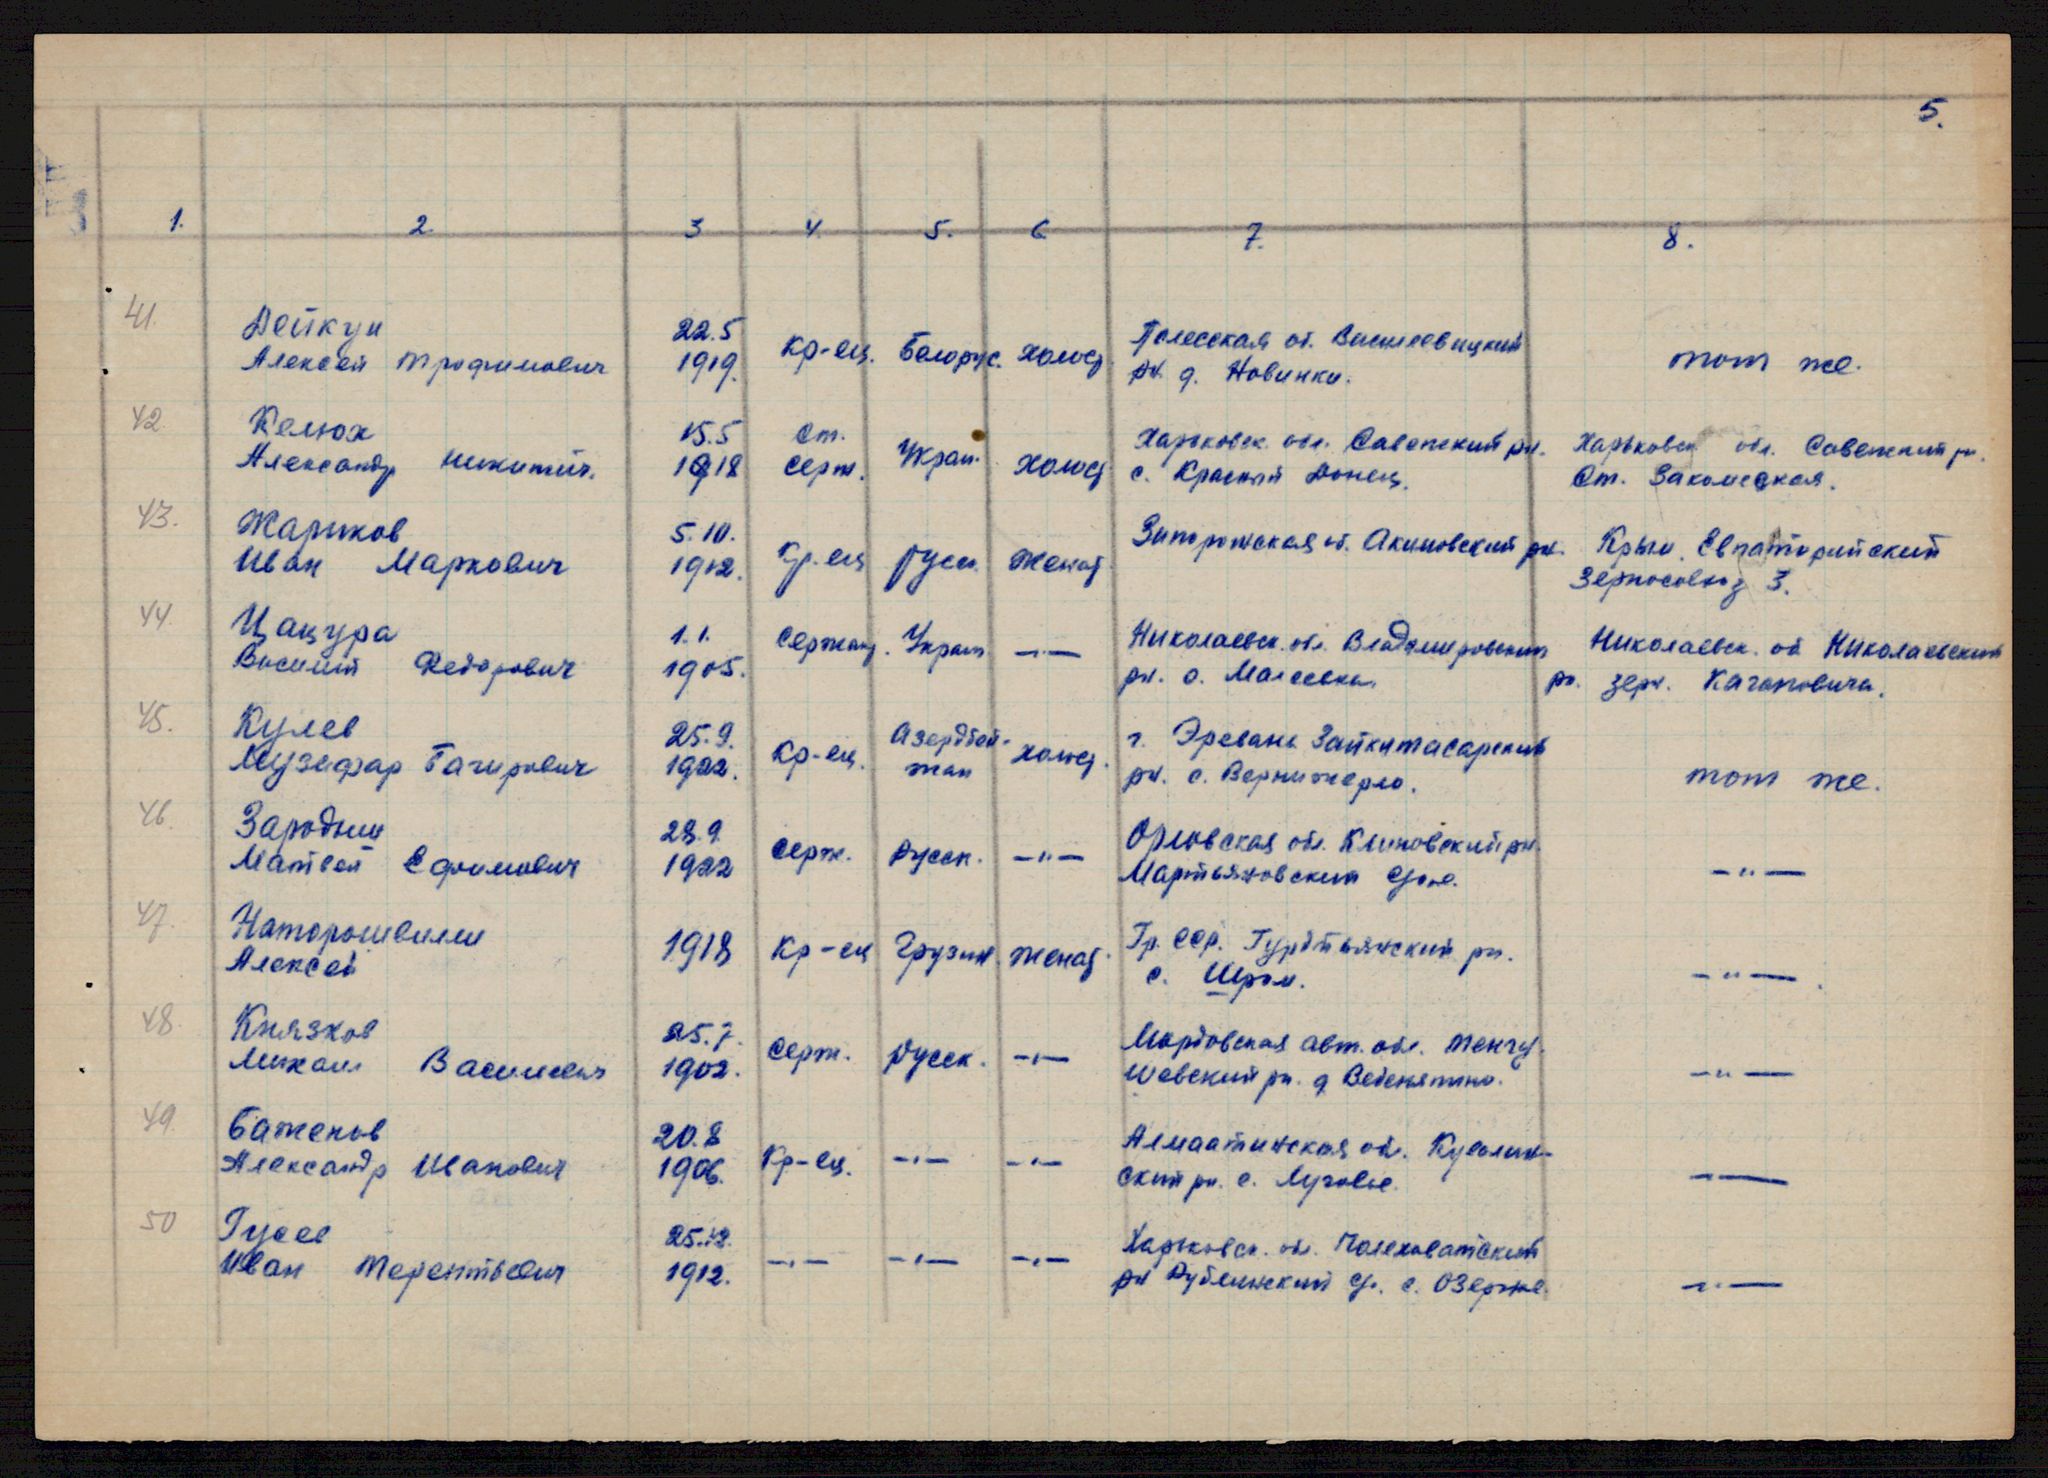 5.
1. 2. 3 4. 5. 6 7. 8.
41. Дейкун 22.5 Полесская об. Василевицкий
Алексей Трофимович 1919. Кр-ец. Белорус. холост. рн. д. Новинки. тот же.
42. Келюх 15.5 Ст. Харьковск. обл. Савенский рн. Харьковск обл. Савенский рн.
Александр Никитич. 1918 серж. Украи. холост с. Красный Донец. Ст.
43. Жариков 5.10. Запорожская об. Акимовский рн. Крым. Евпаторийский
Иван Маркович 1912. Кр.-ец русск. женат. Зерносовхоз 3.
44. Цацура 1.1. Сержант. Украин Николаевск. обл. Владимировский Николаевск. об Николаевский
Василий Федорович 1905. —„— рн. с. рн. зерн. Кагановича.
45. Кулев 25.9. Азердбей- г. Эревань
Музафар Багирович 1922. Кр-ец. жан холост. рн. с. тот же.
46. Зародни 28.9. Орловская обл. Климовский рн.
Матвей Ефимович 1922 серж. Русск. —„— Мартьяновский —„—
47. Наторошвили Гр. ССР. рн.
Алексей 1918 Кр-ец Грузин женат. с. Шром. —„—.
48. Князков 25.7. Мордовская авт. обл. Теньгу-
Михаил Васильевич 1902. серж. Русск. —„— шевский рн. д Веденяпино. —„—
49. Баженов 20.8 Алмаатинская обл.
Александр Иванович 1906. Кр-ец. —„— —„— ский рн. с. Луговое. —„—
50 Гусев 25.12. Харьковск. обл.
Иван Терентьевич 1912. —„— —„— —„— рн с. —„—